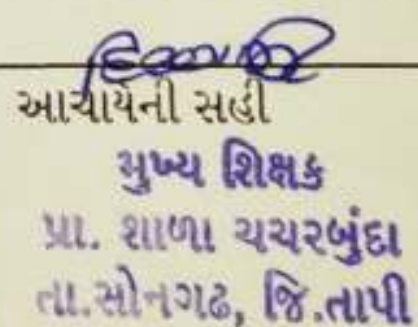 આચાર્યની સહી
મુખ્ય શિક્ષક
પ્રા. શાળા ચચરબુંદા
તા.સોનગઢ, જિ.તાપી